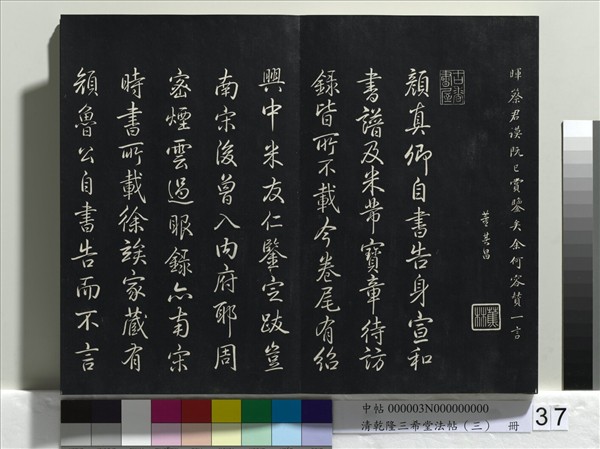 暉蔡君謨阮已賞鑒矣余何容贊一言
董其昌
顏真卿自書告身宣和
書譜及米芾寶章待訪
錄皆所不載今卷尾有紹
興中米友仁鑒定跋豈
南宋後曾入內府耶周
密煙雲過眼錄亦南宋
時書所載徐琰家藏有
顏魯公自書告而不言
中帖 000003N000000000
清乾隆三希堂法帖（三） 冊
37